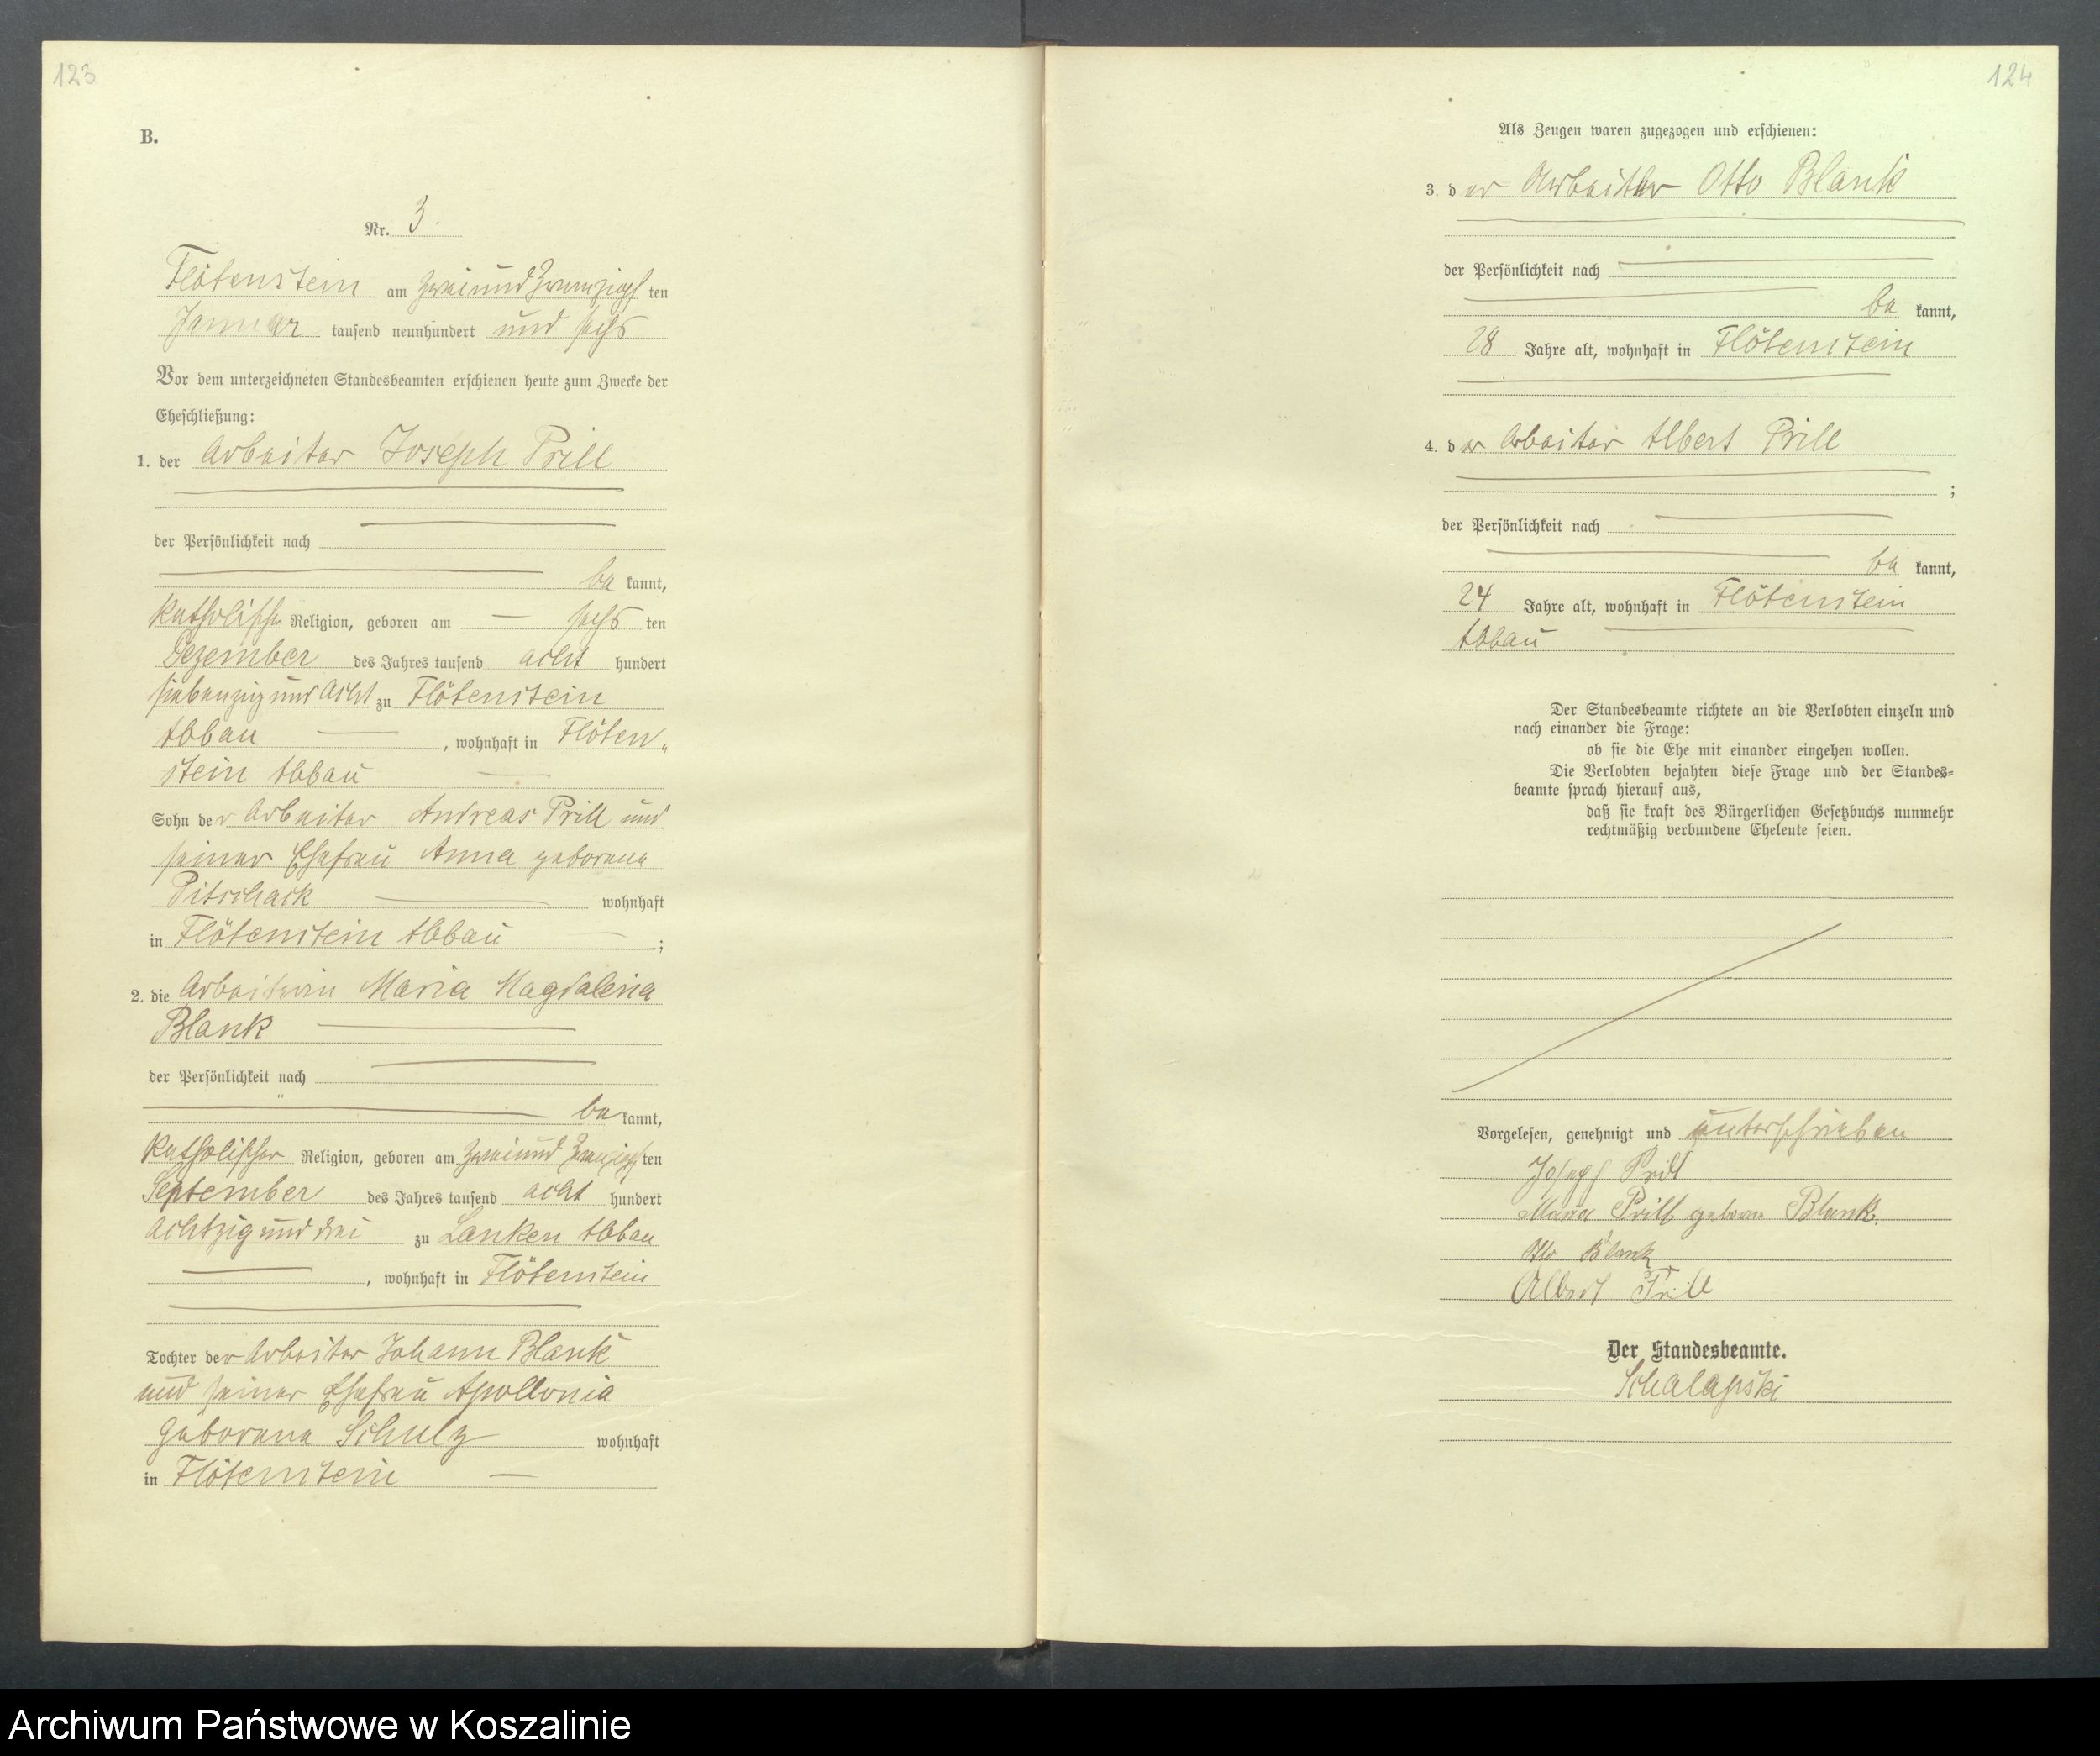 123
B.
Nr. 3.
Flötenstein am zweiundzwanzigsten
Januar tausend neunhundert und sechs
Vor dem unterzeichneten Standesbeamten erschienen heute zum Zwecke der
Eheschließung:
1. der Arbeiter Joseph Prill
der Persönlichkeit nach
bekannt,
katholischer Religion, geboren am sechsten
Dezember des Jahres tausend acht hundert
siebenzig und acht zu Flötenstein
Abbau, wohnhaft in Flöten„
stein Abbau
Sohn der Arbeiter Andreas Prill und
seiner Ehefrau Anna geborene
Pitschack wohnhaft
in Flötenstein Abbau ;
2. die Arbeiterin Maria Magdalena
Blank
der Persönlichkeit nach
bekannt,
katholischer Religion, geboren am zweiundzwanzigsten
September des Jahres tausend acht hundert
achtzig und drei zu Lanken Abbau
, wohnhaft in Flötenstein
Tochter der Arbeiter Johann Blank
und seiner Ehefrau Apollonia
geborene Schulz wohnhaft
in Flötenstein
124
Als Zeugen waren zugezogen und erschienen:
3. der Arbeiter Otto Blank
der Persönlichkeit nach
bekannt,
28 Jahre alt, wohnhaft in Flötenstein
4. der Arbeiter Albert Prill
;
der Persönlichkeit nach
bekannt,
24 Jahre alt, wohnhaft in Flötenstein
Abbau
Der Standesbeamte richtete an die Verlobten einzeln und
nach einander die Frage:
ob sie die Ehe mit einander eingehen wollen.
Die Verlobten bejahten diese Frage und der Standes-
beamte sprach hierauf aus,
daß sie kraft des Bürgerlichen Gesetzbuchs nunmehr
rechtmäßig verbundene Eheleute seien.
Vorgelesen, genehmigt und unterschrieben
Joseph Prill
Maria Prill geborene Blank.
Otto Blank
Albert Prill
Der Standesbeamte.
Schalapski
Archiwum Państwowe w Koszalinie